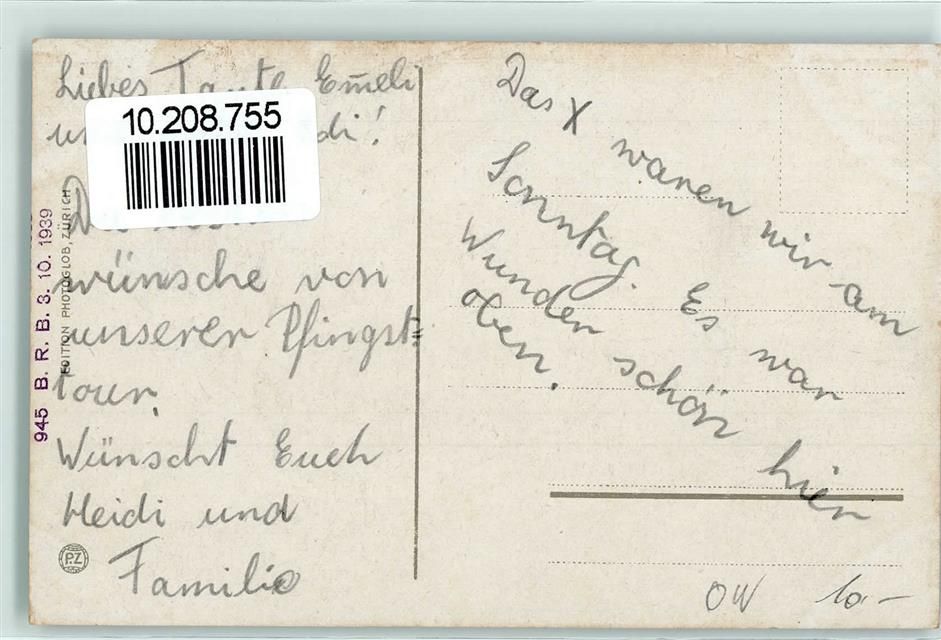 Liebes Tante Emeli
di!
10.208.755
wünsche von
unserer Pfingst=
tour.
Wünscht Euch
Heidi und
Familie
945 B. R. B. 3. 10. 1939
EDITION PHOTOGLOB, ZÜRICH
P.Z
Das X waren wir am
Sonntag. Es war
Wunder schön hier
oben.
OW 10.-